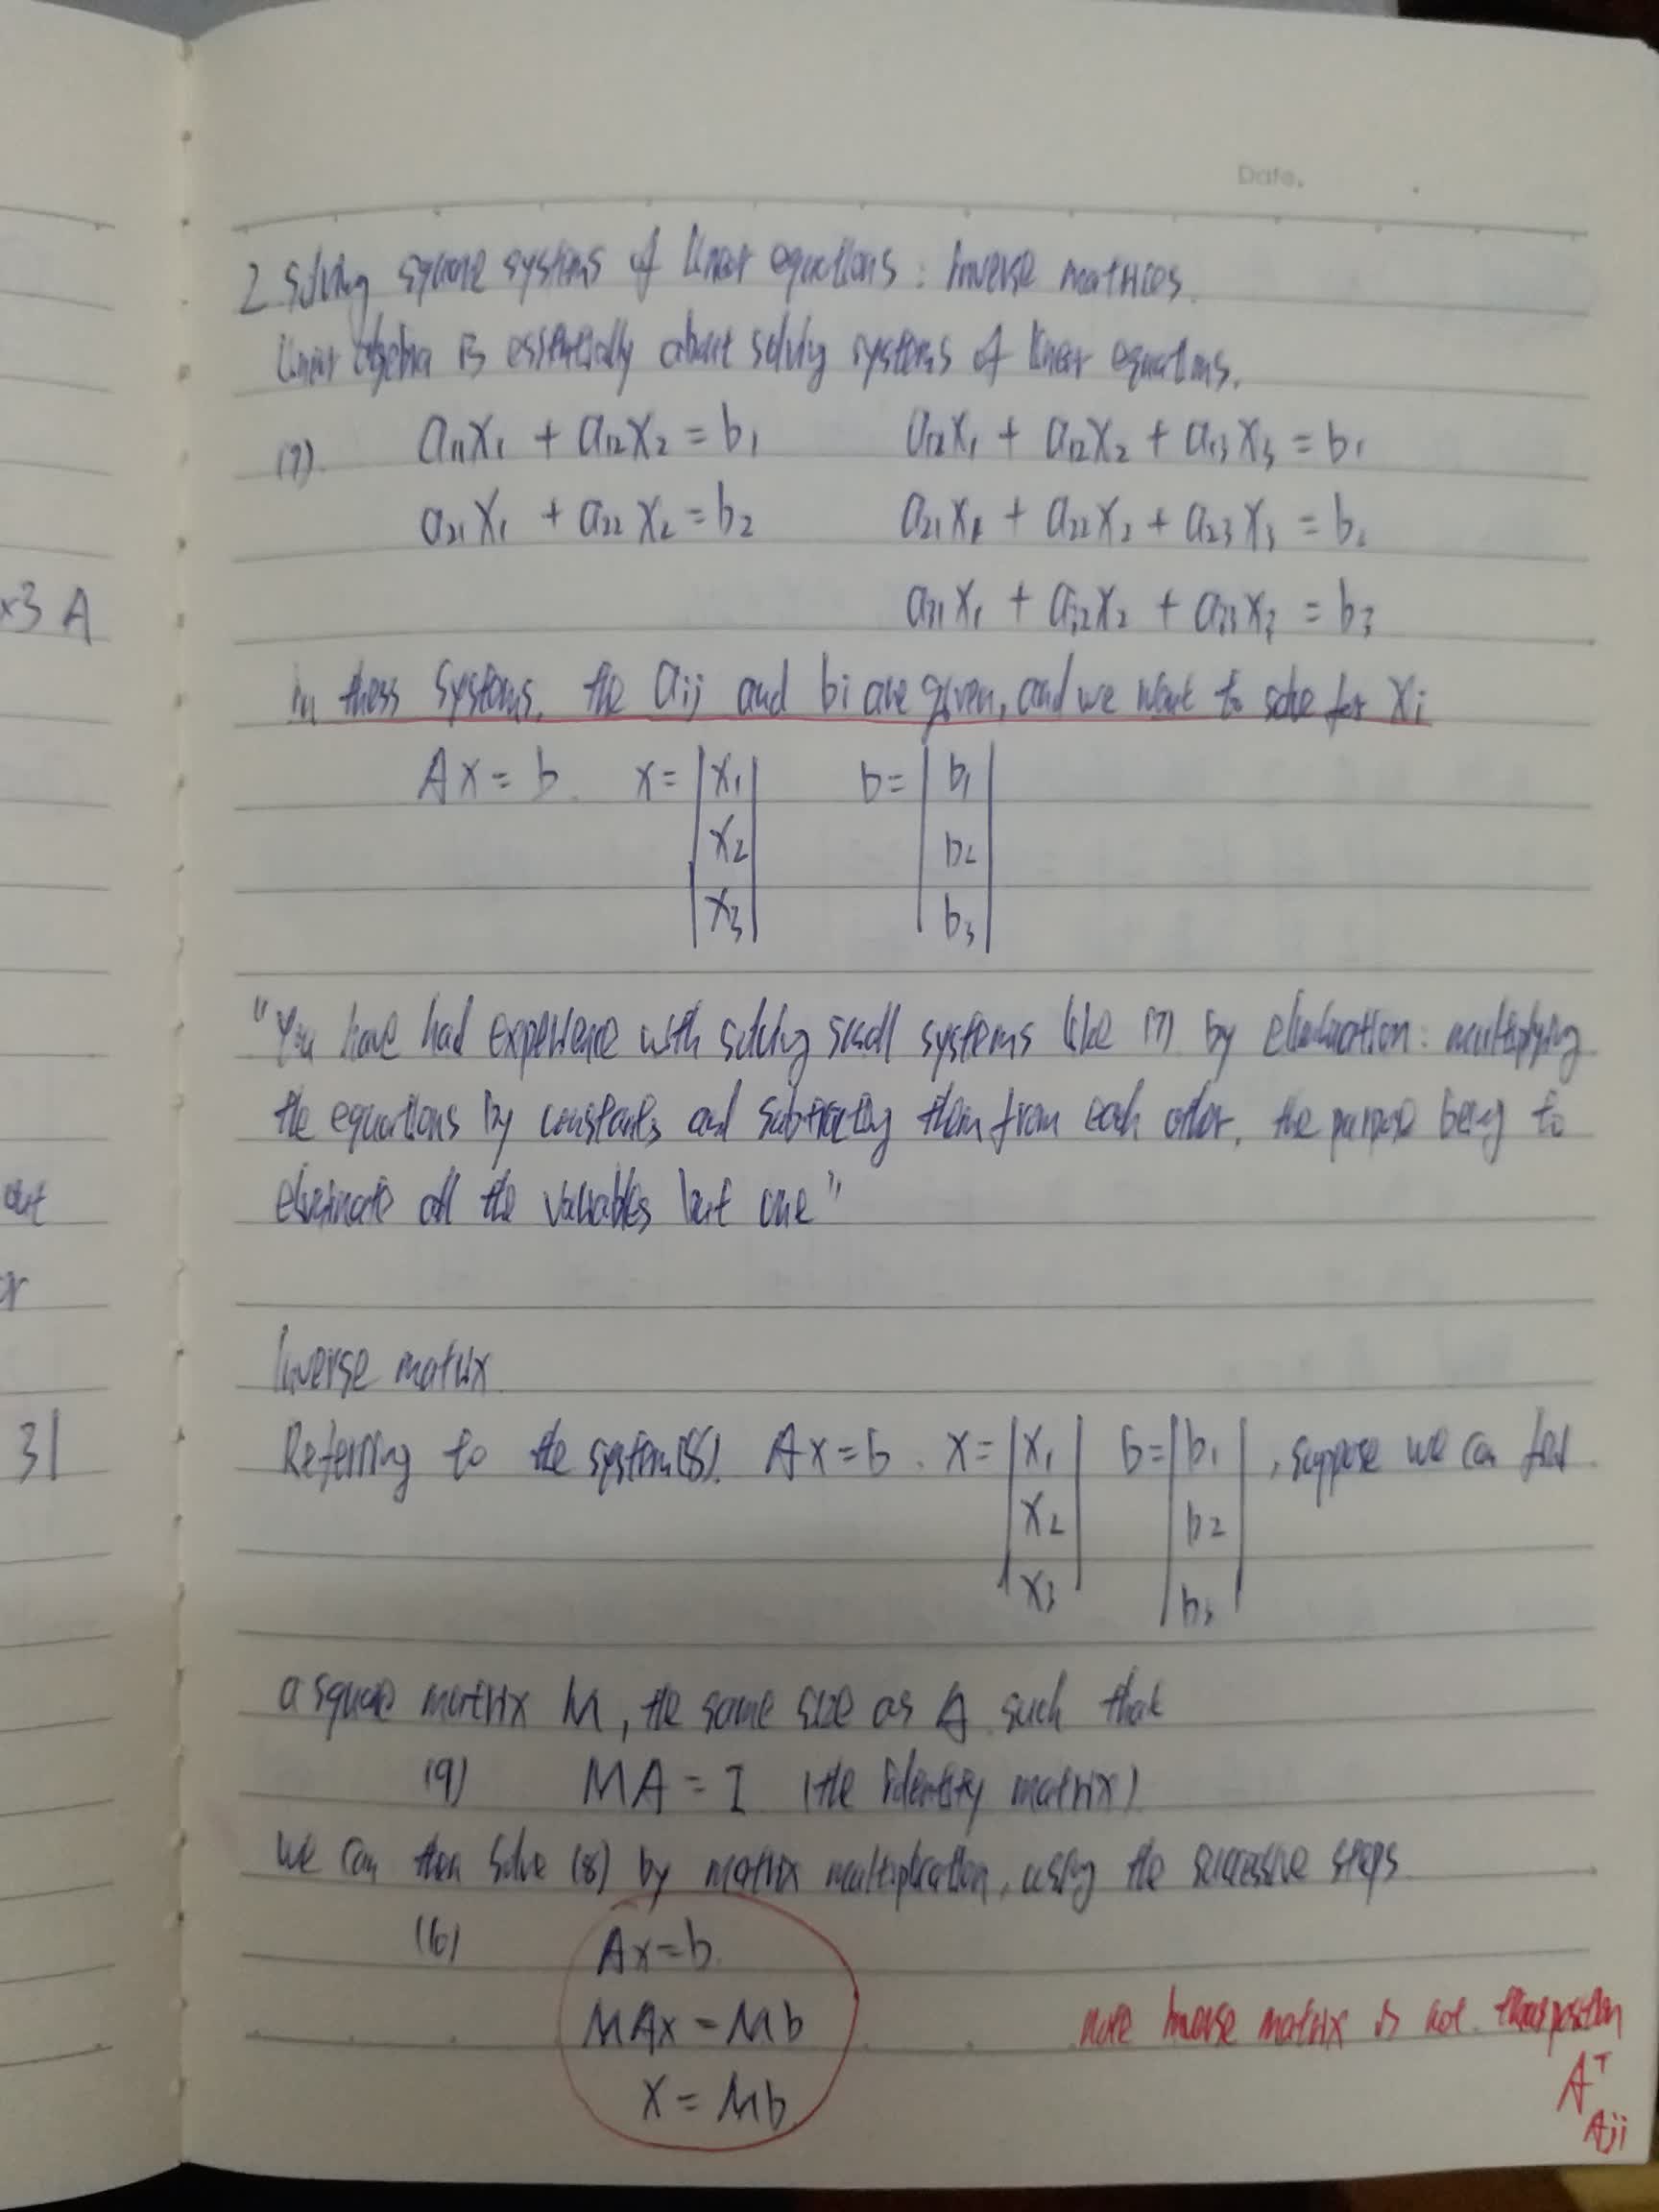 Date.
2 Solving square systems of linear equations : Inverse matrices.
Linear algebra is essentially about solving systems of linear equations.
(7) a11x1 + a12x2 = b1 a12x1 + a12x2 + a13x3 = b1
a21x1 + a22x2 = b2 a21x1 + a22x2 + a23x3 = b2
a31x1 + a32x2 + a33x3 = b3
x3 A
In these systems, the aij and bi are given, and we want to solve for xi
Ax = b. x = |x1| b = |b1|
|x2| |b2|
|x3| |b3|
"You have had experience with solving small systems like (7) by elimination : multiplying
the equations by constants and subtracting them from each other, the purpose being to
eliminate all the variables but one"
out
er
Inverse matrix
31
Referring to the system (8). Ax = b. x = |x1| b = |b1|, suppose we can find
|x2| |b2|
|x3| |b3|
a square matrix M, the same size as A such that
(9) MA = I (the identity matrix)
we can then solve (8) by matrix multiplication, using the successive steps
(10) Ax = b.
MAx = Mb
x = Mb
note Inverse matrix is not transposition
AT
Aji